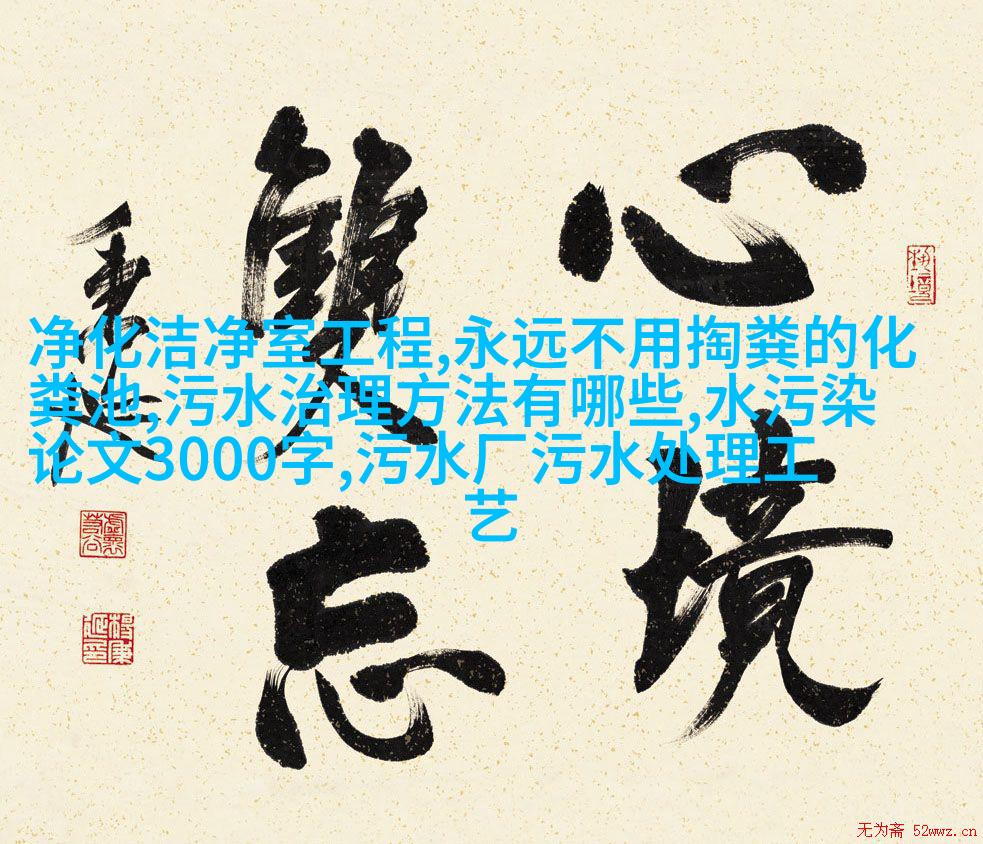 心境
雙忘
净化洁净室工程,永远不用掏粪的化
粪池,污水治理方法有哪些,水污染
论文3000字,污水厂污水处理工
艺
无为斋 52wwz.cn